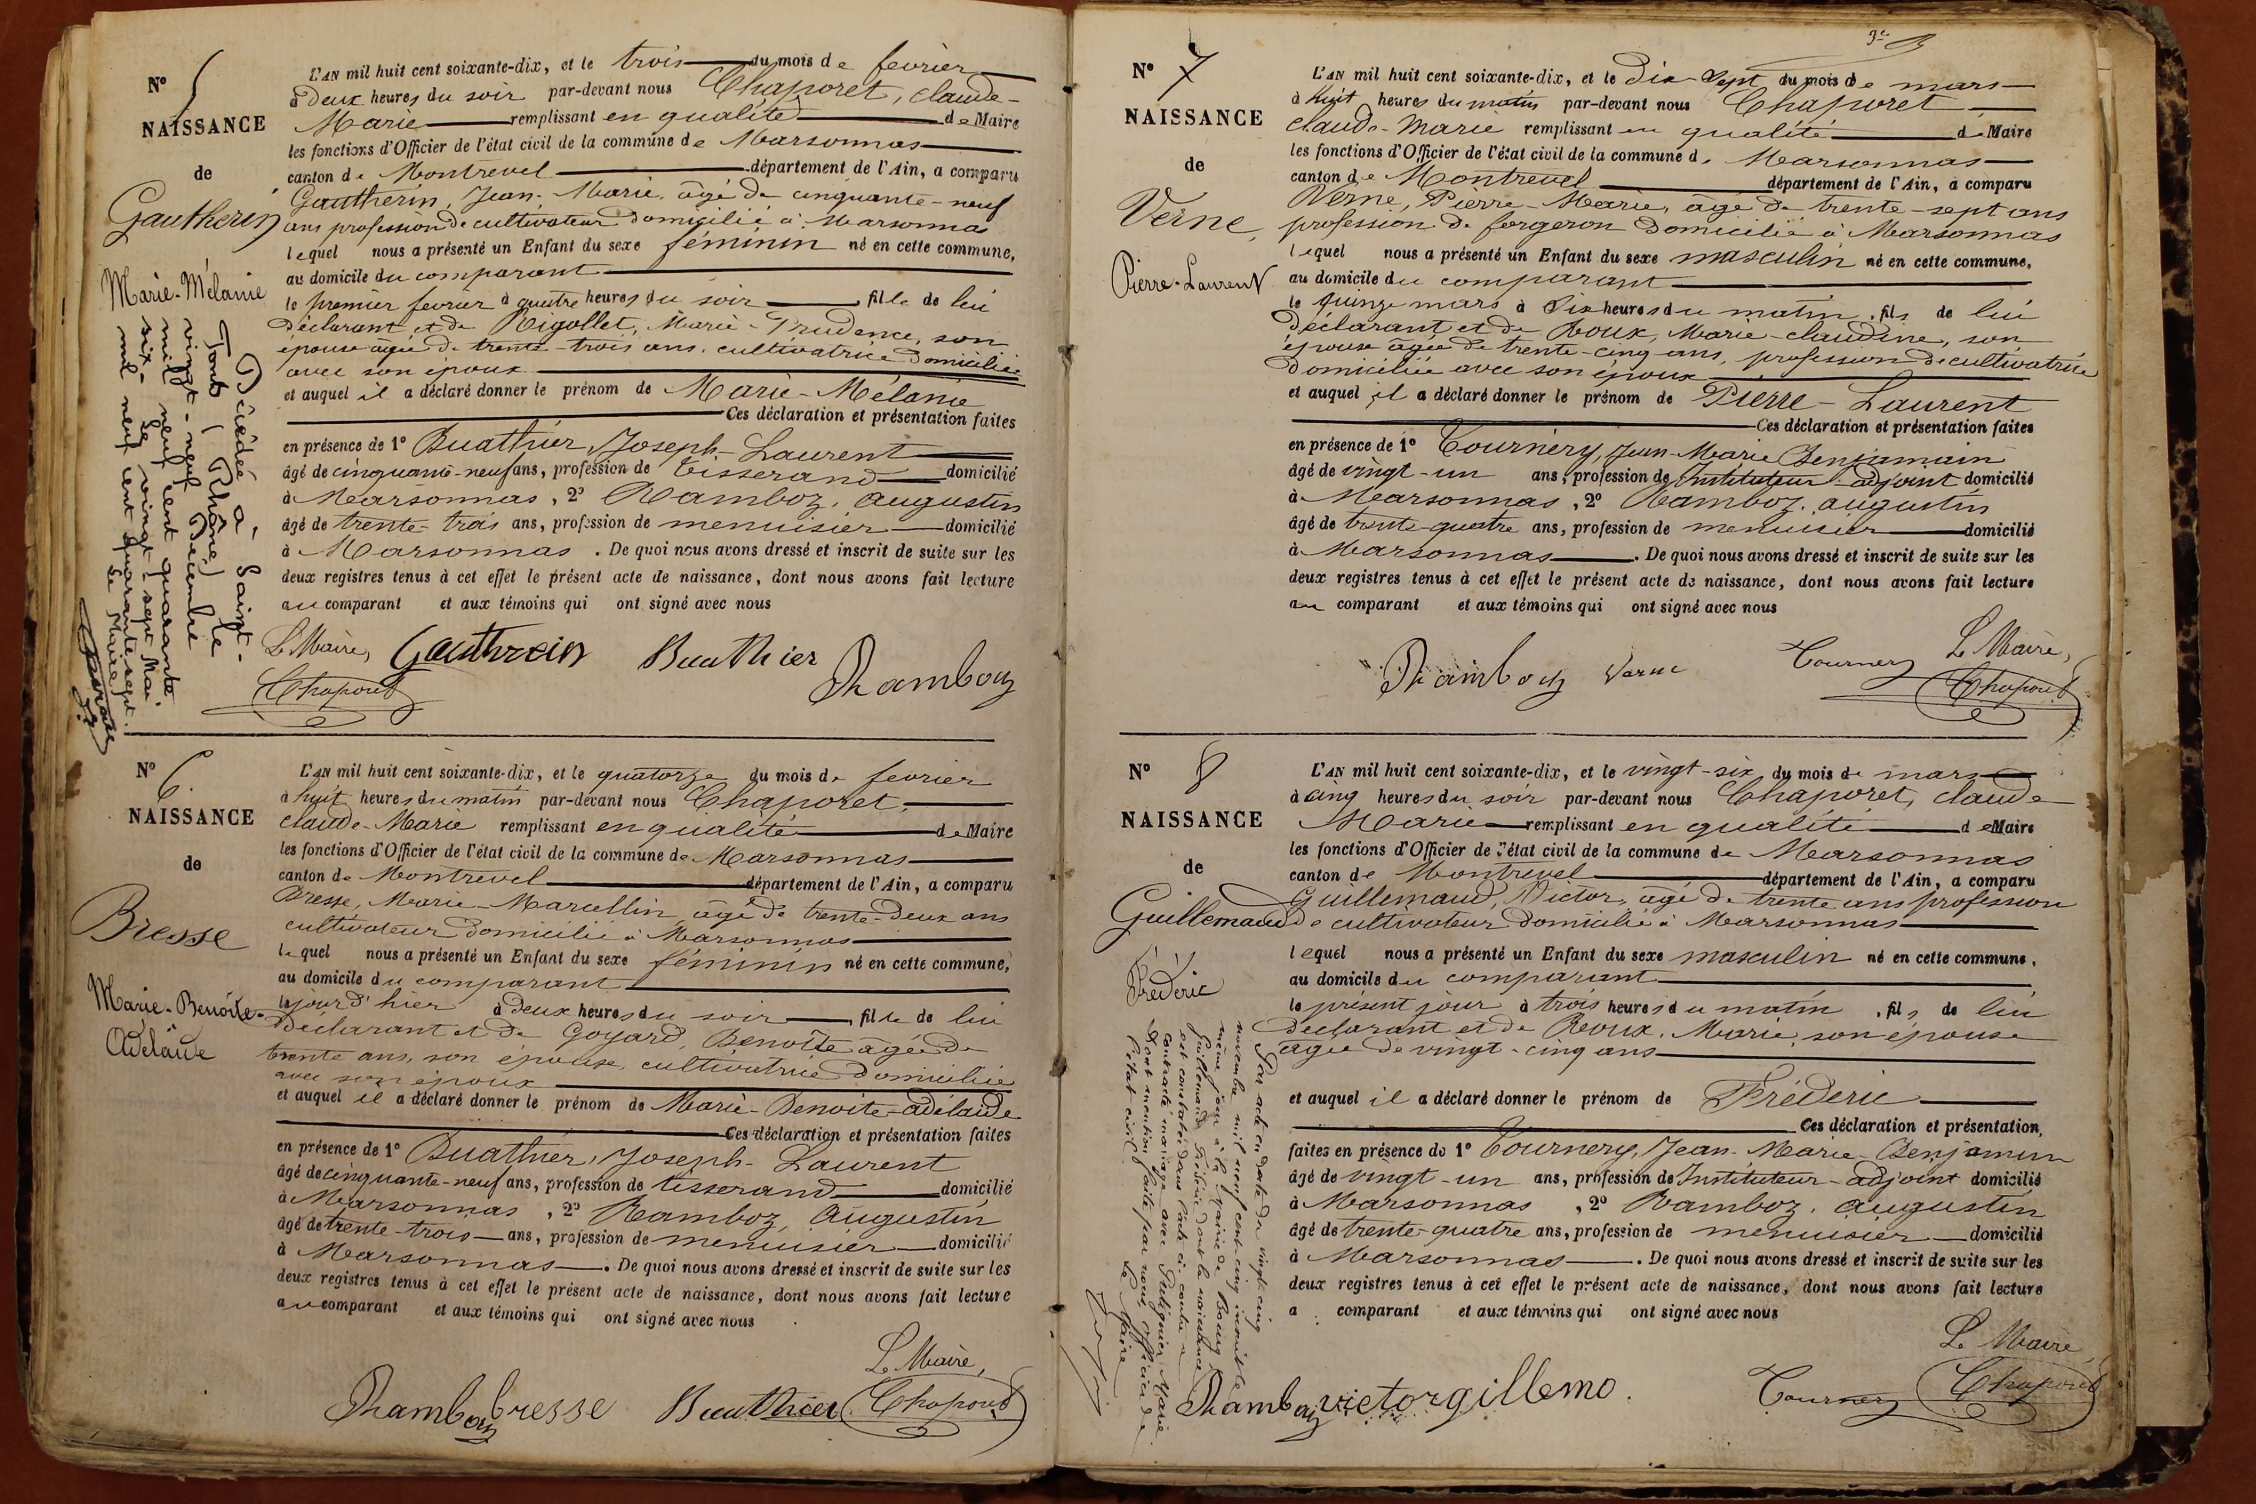 N° 5
NAISSANCE
de
Gautherin
Marie-Mélanie
Décédée à Saint-
Fons (Rhône) le
vingt-neuf Décembre
mil neuf cent quarante
six. Le vingt-sept Mai
mil neuf cent quarante sept.
Le Maire
L'AN mil huit cent soixante-dix, et le trois du mois de fevrier
à Deux heures du soir par-devant nous Chaporet, claude-
Marie remplissant en qualité de Maire
les fonctions d'Officier de l'état civil de la commune de Marsonnas
canton de Montrevel département de l'Ain, a comparu
Gautherin, Jean-Marie, âgé de cinquante-neuf
ans profession de cultivateur domicilié à Marsonnas
lequel nous a présenté un Enfant du sexe féminin né en cette commune,
au domicile du comparant
le premier fevrier à quatre heures du soir, fille de lui
déclarant et de Rigollet, Marie-Prudence, son
épouse âgée de trente-trois ans, cultivatrice domiciliée
avec son époux
et auquel il a déclaré donner le prénom de Marie-Mélanie
Ces déclaration et présentation faites
en présence de 1° Buathier, Joseph-Laurent
âgé de cinquante-neuf ans, profession de tisserand domicilié
à Marsonnas, 2° Ramboz, Augustin
âgé de trente-trois ans, profession de menuisier domicilié
à Marsonnas. De quoi nous avons dressé et inscrit de suite sur les
deux registres tenus à cet effet le présent acte de naissance, dont nous avons fait lecture
au comparant et aux témoins qui ont signé avec nous
Le Maire, Gautherin Buathier Rambouz
Chaporet
N° 6.
NAISSANCE
de
Bresse
Marie-Benoîte-
Adélaïde
L'AN mil huit cent soixante-dix, et le quatorze du mois de fevrier
à huit heures du matin par-devant nous Chaporet,
claude-Marie remplissant en qualité de Maire
les fonctions d'Officier de l'état civil de la commune de Marsonnas
canton de Montrevel département de l'Ain, a comparu
Bresse, Marie-Marcellin âgé de trente-deux ans
cultivateur domicilié à Marsonnas
lequel nous a présenté un Enfant du sexe féminin né en cette commune,
au domicile du comparant
le jour d'hier à deux heures du soir, fille de lui
déclarant et de Goyard, Benoîte âgée de
trente ans, son épouse, cultivatrice domiciliée
avec son époux
et auquel il a déclaré donner le prénom de Marie-Benoite-adélaide
Ces déclaration et présentation faites
en présence de 1° Buathier, Joseph-Laurent
âgé de cinquante-neuf ans, profession de tisserand domicilié
à Marsonnas, 2° Ramboz, Augustin
âgé de trente-trois ans, profession de menuisier domicilié
à Marsonnas. De quoi nous avons dressé et inscrit de suite sur les
deux registres tenus à cet effet le présent acte de naissance, dont nous avons fait lecture
au comparant et aux témoins qui ont signé avec nous
Le Maire,
Rambouz bresse Buathier Chaporet
N° 7
NAISSANCE
de
Verne,
Pierre-Laurent
L'AN mil huit cent soixante-dix, et le Dix-Sept du mois de mars
à huit heures du matin par-devant nous Chaporet
claude-Marie remplissant en qualité de Maire
les fonctions d'Officier de l'état civil de la commune de Marsonnas
canton de Montrevel département de l'Ain, a comparu
Verne, Pierre-Marie, âgé de trente-sept ans
profession de forgeron domicilié à Marsonnas
lequel nous a présenté un Enfant du sexe masculin né en cette commune,
au domicile du comparant
le quinze mars à Dix heures du matin, fils de lui
déclarant et de Roux, Marie-claudine, son
épouse âgée de trente-cinq ans, profession de cultivatrice
domiciliée avec son époux
et auquel il a déclaré donner le prénom de Pierre-Laurent
Ces déclaration et présentation faites
en présence de 1° Tournery, Jean-Marie Benjamain
âgé de vingt-un ans, profession de Instituteur-adjoint domicilié
à Marsonnas, 2° Ramboz, augustin
âgé de trente-quatre ans, profession de menuisier domicilié
à Marsonnas. De quoi nous avons dressé et inscrit de suite sur les
deux registres tenus à cet effet le présent acte de naissance, dont nous avons fait lecture
au comparant et aux témoins qui ont signé avec nous
Le Maire,
Rambouz Verne Tournery
Chaporet
N° 8
NAISSANCE
de
Guillemaud
Fréderic
Par acte en date du vingt cinq
novembre mil neuf cent cinq inscrit le
même jour à la mairie de Bourg,
Guillemaud Fréderic dont la naissance
est constatée dans l'acte ci-contre a
contracté mariage avec Marie.
Dont mention faite par nous officier de
l'état civil.
Le Maire
L'AN mil huit cent soixante-dix, et le vingt-six du mois de mars
à cinq heures du soir par-devant nous Chaporet, claude
Marie remplissant en qualité de Maire
les fonctions d'Officier de l'état civil de la commune de Marsonnas
canton de Montrevel département de l'Ain, a comparu
Guillemaud, Victor, âgé de trente ans profession
de cultivateur domicilié à Marsonnas
lequel nous a présenté un Enfant du sexe masculin né en cette commune,
au domicile du comparant
le présent jour à trois heures du matin, fils de lui
déclarant et de Roux, Marie, son épouse
âgée de vingt-cinq ans
et auquel il a déclaré donner le prénom de Fréderic
Ces déclaration et présentation,
faites en présence de 1° Tournery, Jean-Marie-Benjamin
âgé de vingt-un ans, profession de Instituteur-adjoint domicilié
à Marsonnas, 2° Ramboz, augustin
âgé de trente-quatre ans, profession de menuisier domicilié
à Marsonnas. De quoi nous avons dressé et inscrit de suite sur les
deux registres tenus à cet effet le présent acte de naissance, dont nous avons fait lecture
a comparant et aux témoins qui ont signé avec nous
Le Maire,
Rambouz victorgillemo. Tournery Chaporet